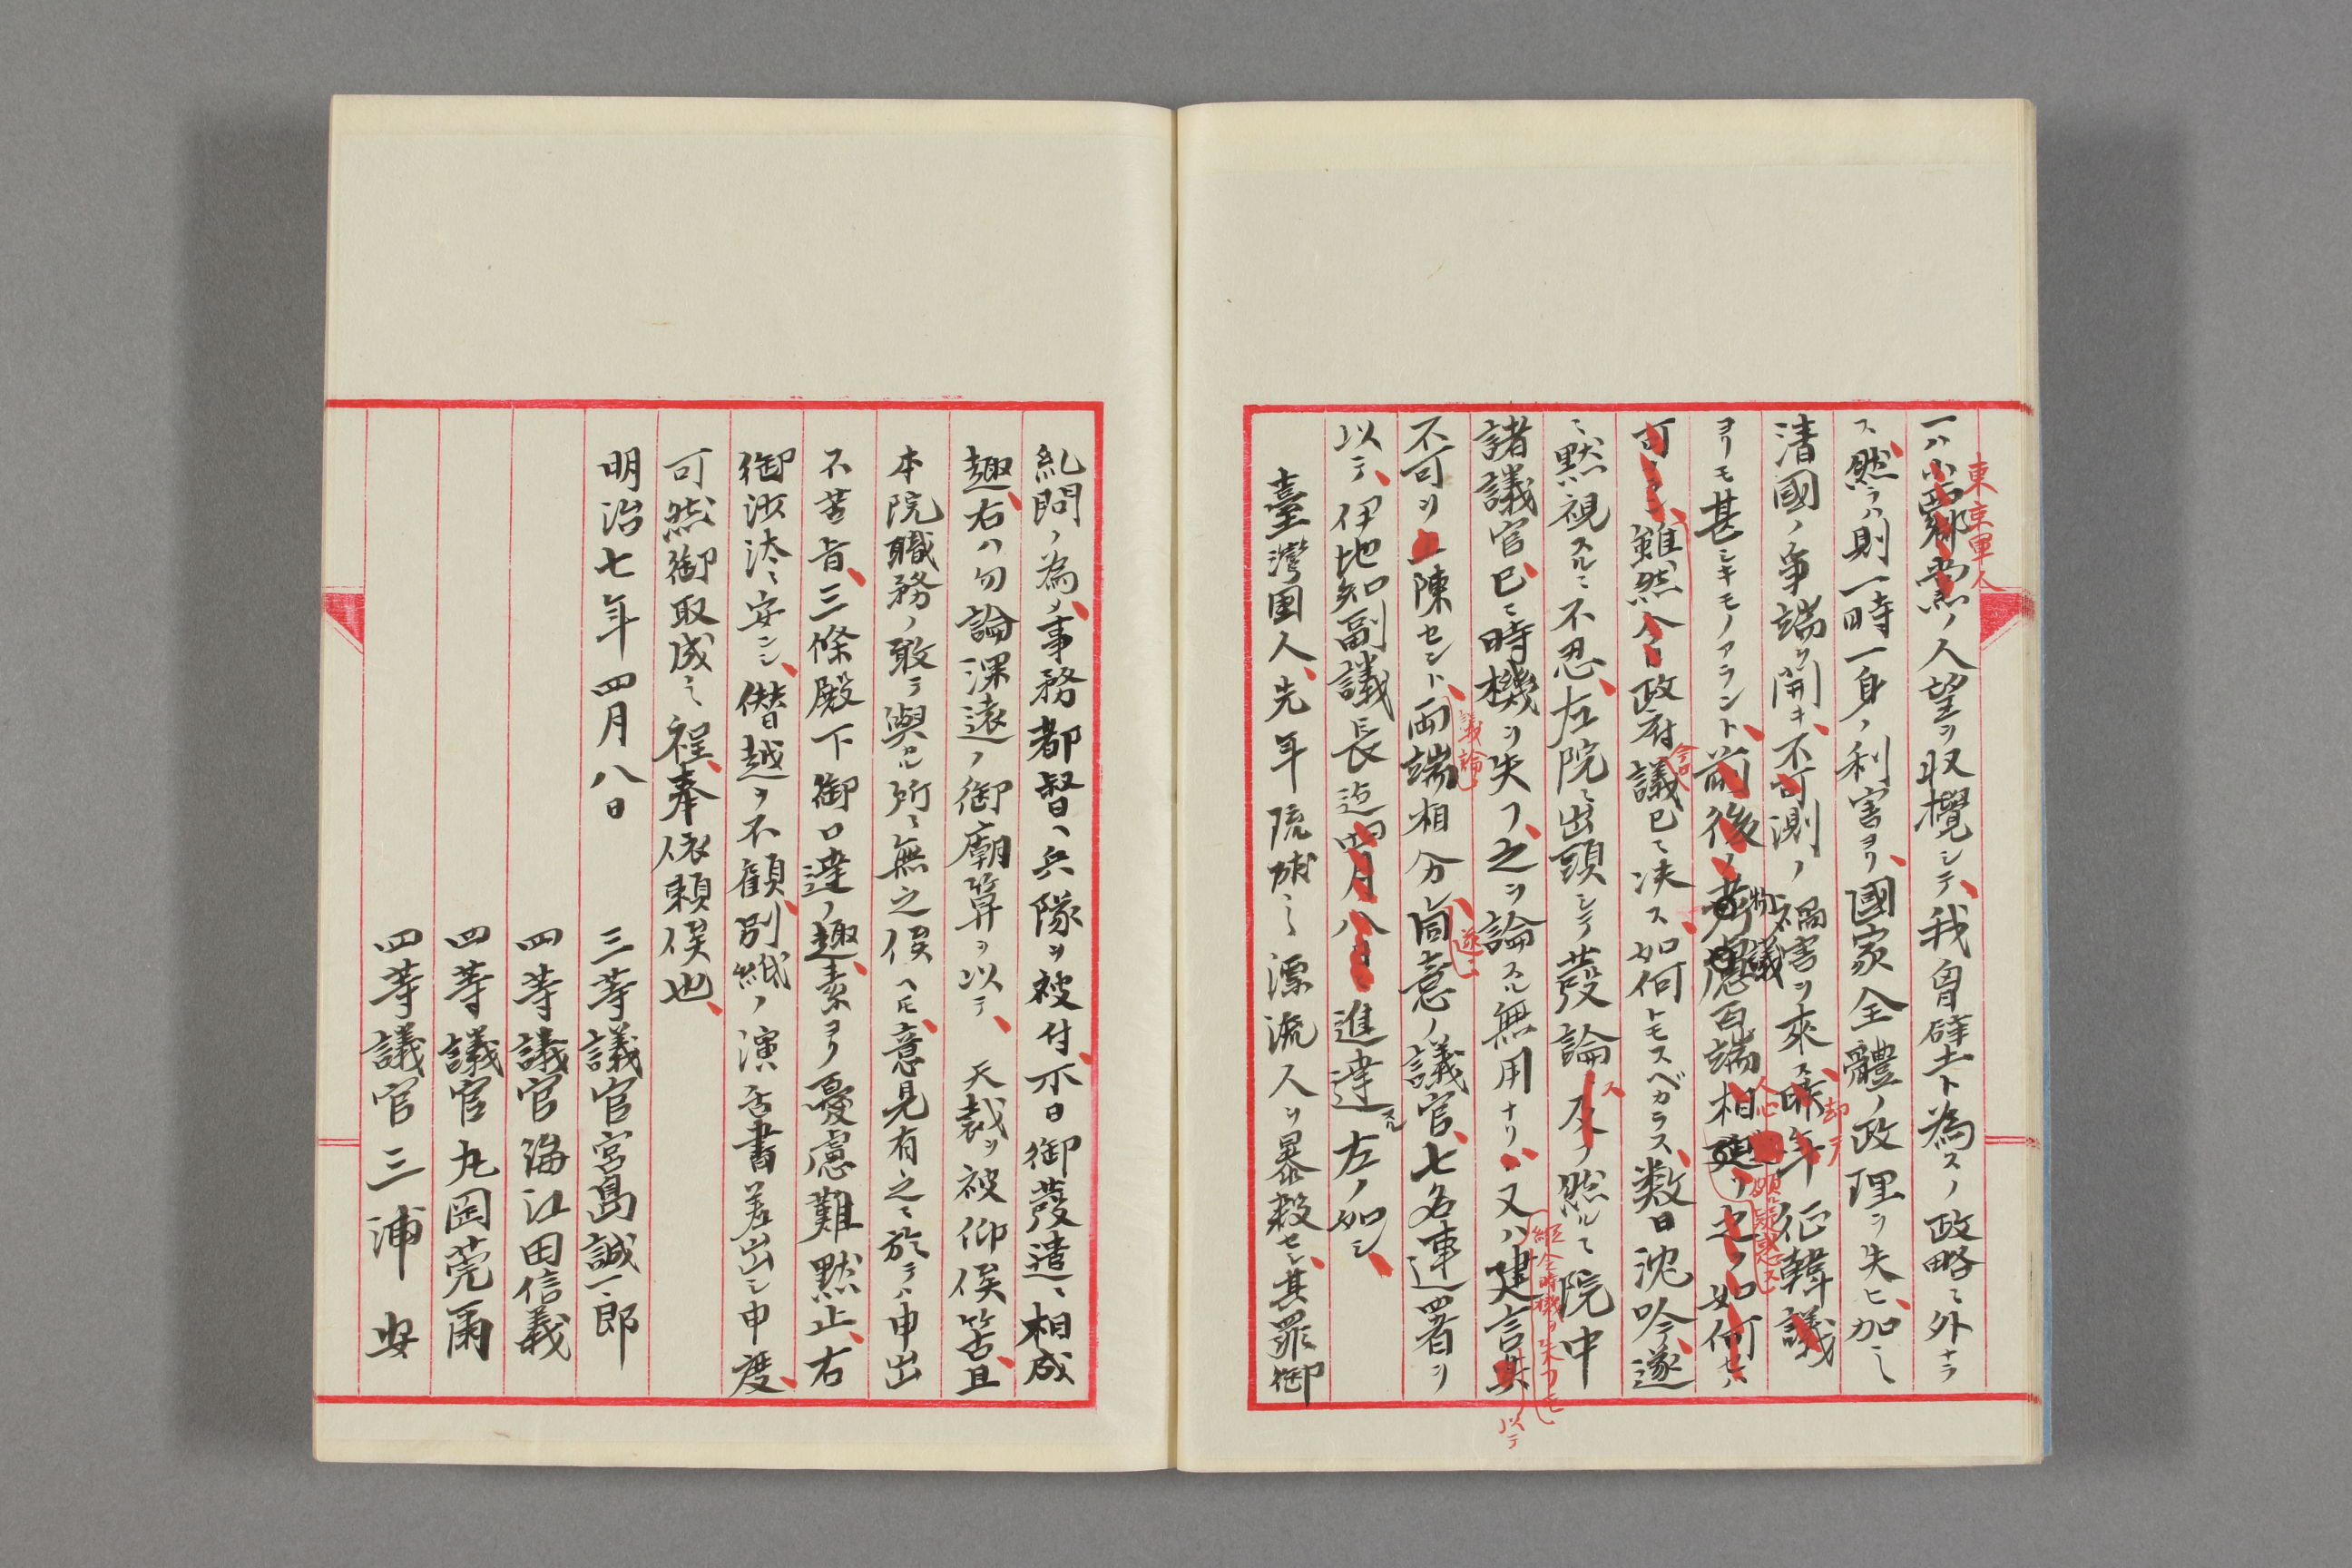 東京軍人
一ハ小西郷黨ノ人望ヲ収攬シテ、我脅肄士ト為スノ政略ニ外ナラ
ス、然ラハ則一時一身ノ利害ヨリ、國家全體ノ政理ヲ失ヒ、加之
清國ノ爭端ヲ開キ、不可測ノ禍害ヲ來ス、昨年征韓議
却テ
ヨリモ甚シキモノアラント、前後ノ考慮百端相廻リ之ヲ如何セハ
物議
人心
頗ル疑惑ス
可ナラン、雖然今日政府議已ニ决ス、如何トモスベカラス、数日沈吟、遂
今日
ニ黙視スルニ不忍、左院ニ出頭シテ發論ス及フ然ルニ院中
ス
諸議官已ニ時機ヲ失フ、之ヲ論スル無用ナリ、又ハ建言其
縦令時機ヲ失フモ
以テ
不可ヲ上陳セント、両端相分レ、同意ノ議官、七名連署ヲ
議論
遂ニ
以テ、伊地知副議長迄四月八日ニ進達スル左ノ如シ、
臺灣國人、先年琉球之漂流人ヲ暴殺セシ、其罪御
糺問ノ為、事務都督ヘ兵隊ヲ被付、不日御發遣ニ相成
趣、右ハ勿論深遠ノ御廟算ヲ以テ、天裁ヲ被仰候筈、且
本院職務ノ敢テ與ル所ニ無之候ヘ𪜈、意見有之ニ於テハ申出
不苦旨、三條殿下御口達ノ趣、素ヨリ憂慮難黙止、右
御沙汰ニ安ンシ、僭越ヲ不顧、別紙ノ演舌書差出シ申度、
可然御取成之程、奉依頼候也、
明治七年四月八日
三等議官宮島誠一郎
四等議官海江田信義
四等議官丸岡莞爾
四等議官三浦安